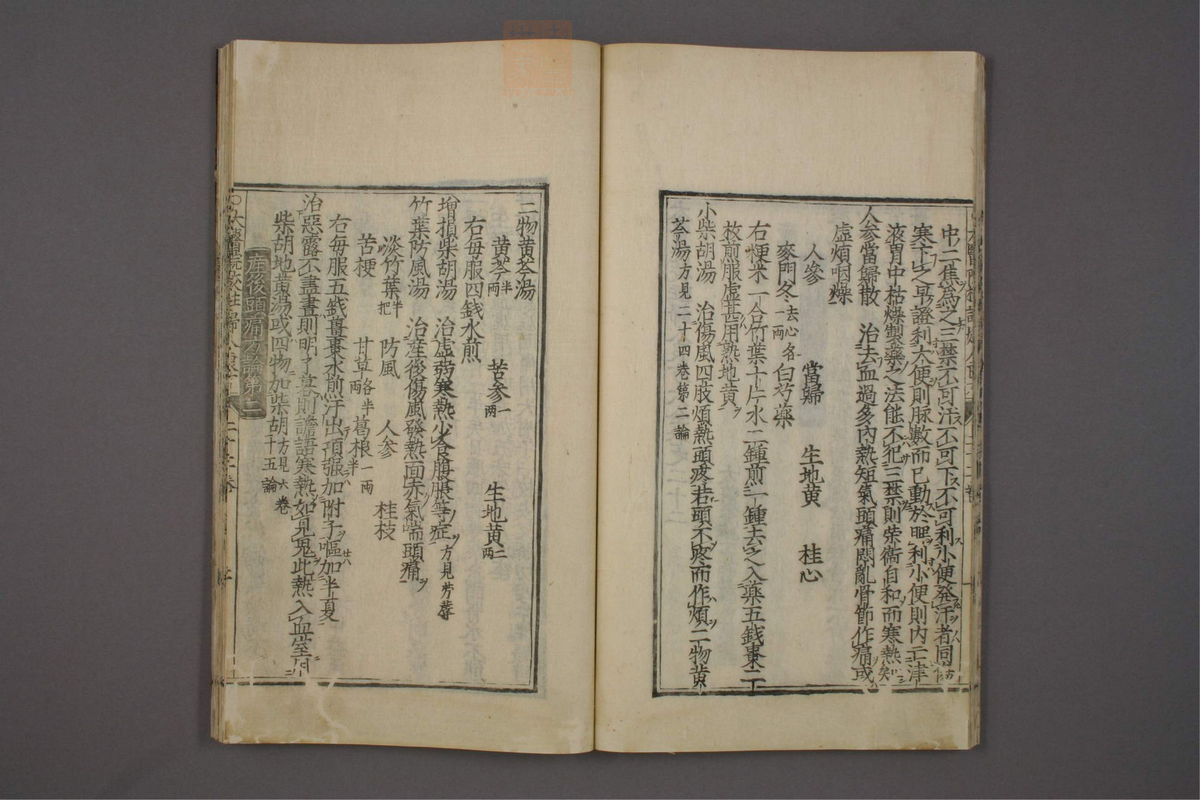 中二焦爲之三禁不可汗不可下不可利小便發汗者同
寒下之早證利大便則脉數而已動於脾利小便則内亡津
液胃中枯燥製藥之法能不犯三禁則荣衛自和而寒熱矣
人参當歸散　治去血過多内熱短氣頭痛悶亂骨節作痛或
虚煩咽燥
人參　當歸　生地黄　桂心
麥門冬去心各一兩　白芍藥
右粳米一合竹葉十片水二鍾煎一鍾去之入藥五錢棗二
枚煎服虚甚用熟地黄
小柴胡湯　治傷風四肢煩熱頭疼若頭不疼而作煩二物黄
芩湯方見二十四卷第二論
二物黄芩湯
黄芩半兩　苦參一兩　生地黄二兩
右每服四錢水煎
增損柴胡湯　治虚弱寒熱少食腹脹等症方見
竹葉防風湯　治産後傷風發熱面赤氣喘頭痛
淡竹葉半把　防風　人參　桂枝
苦梗　甘草各半兩　葛根一兩半
右每服五錢薑棗水煎汗出項強加附子嘔加半夏
治惡露不盡晝則明了暮則譫語寒熱如見鬼此熱入血室
柴胡地黄湯或四物加柴胡方見六卷十五論
産後頭痛方論第二